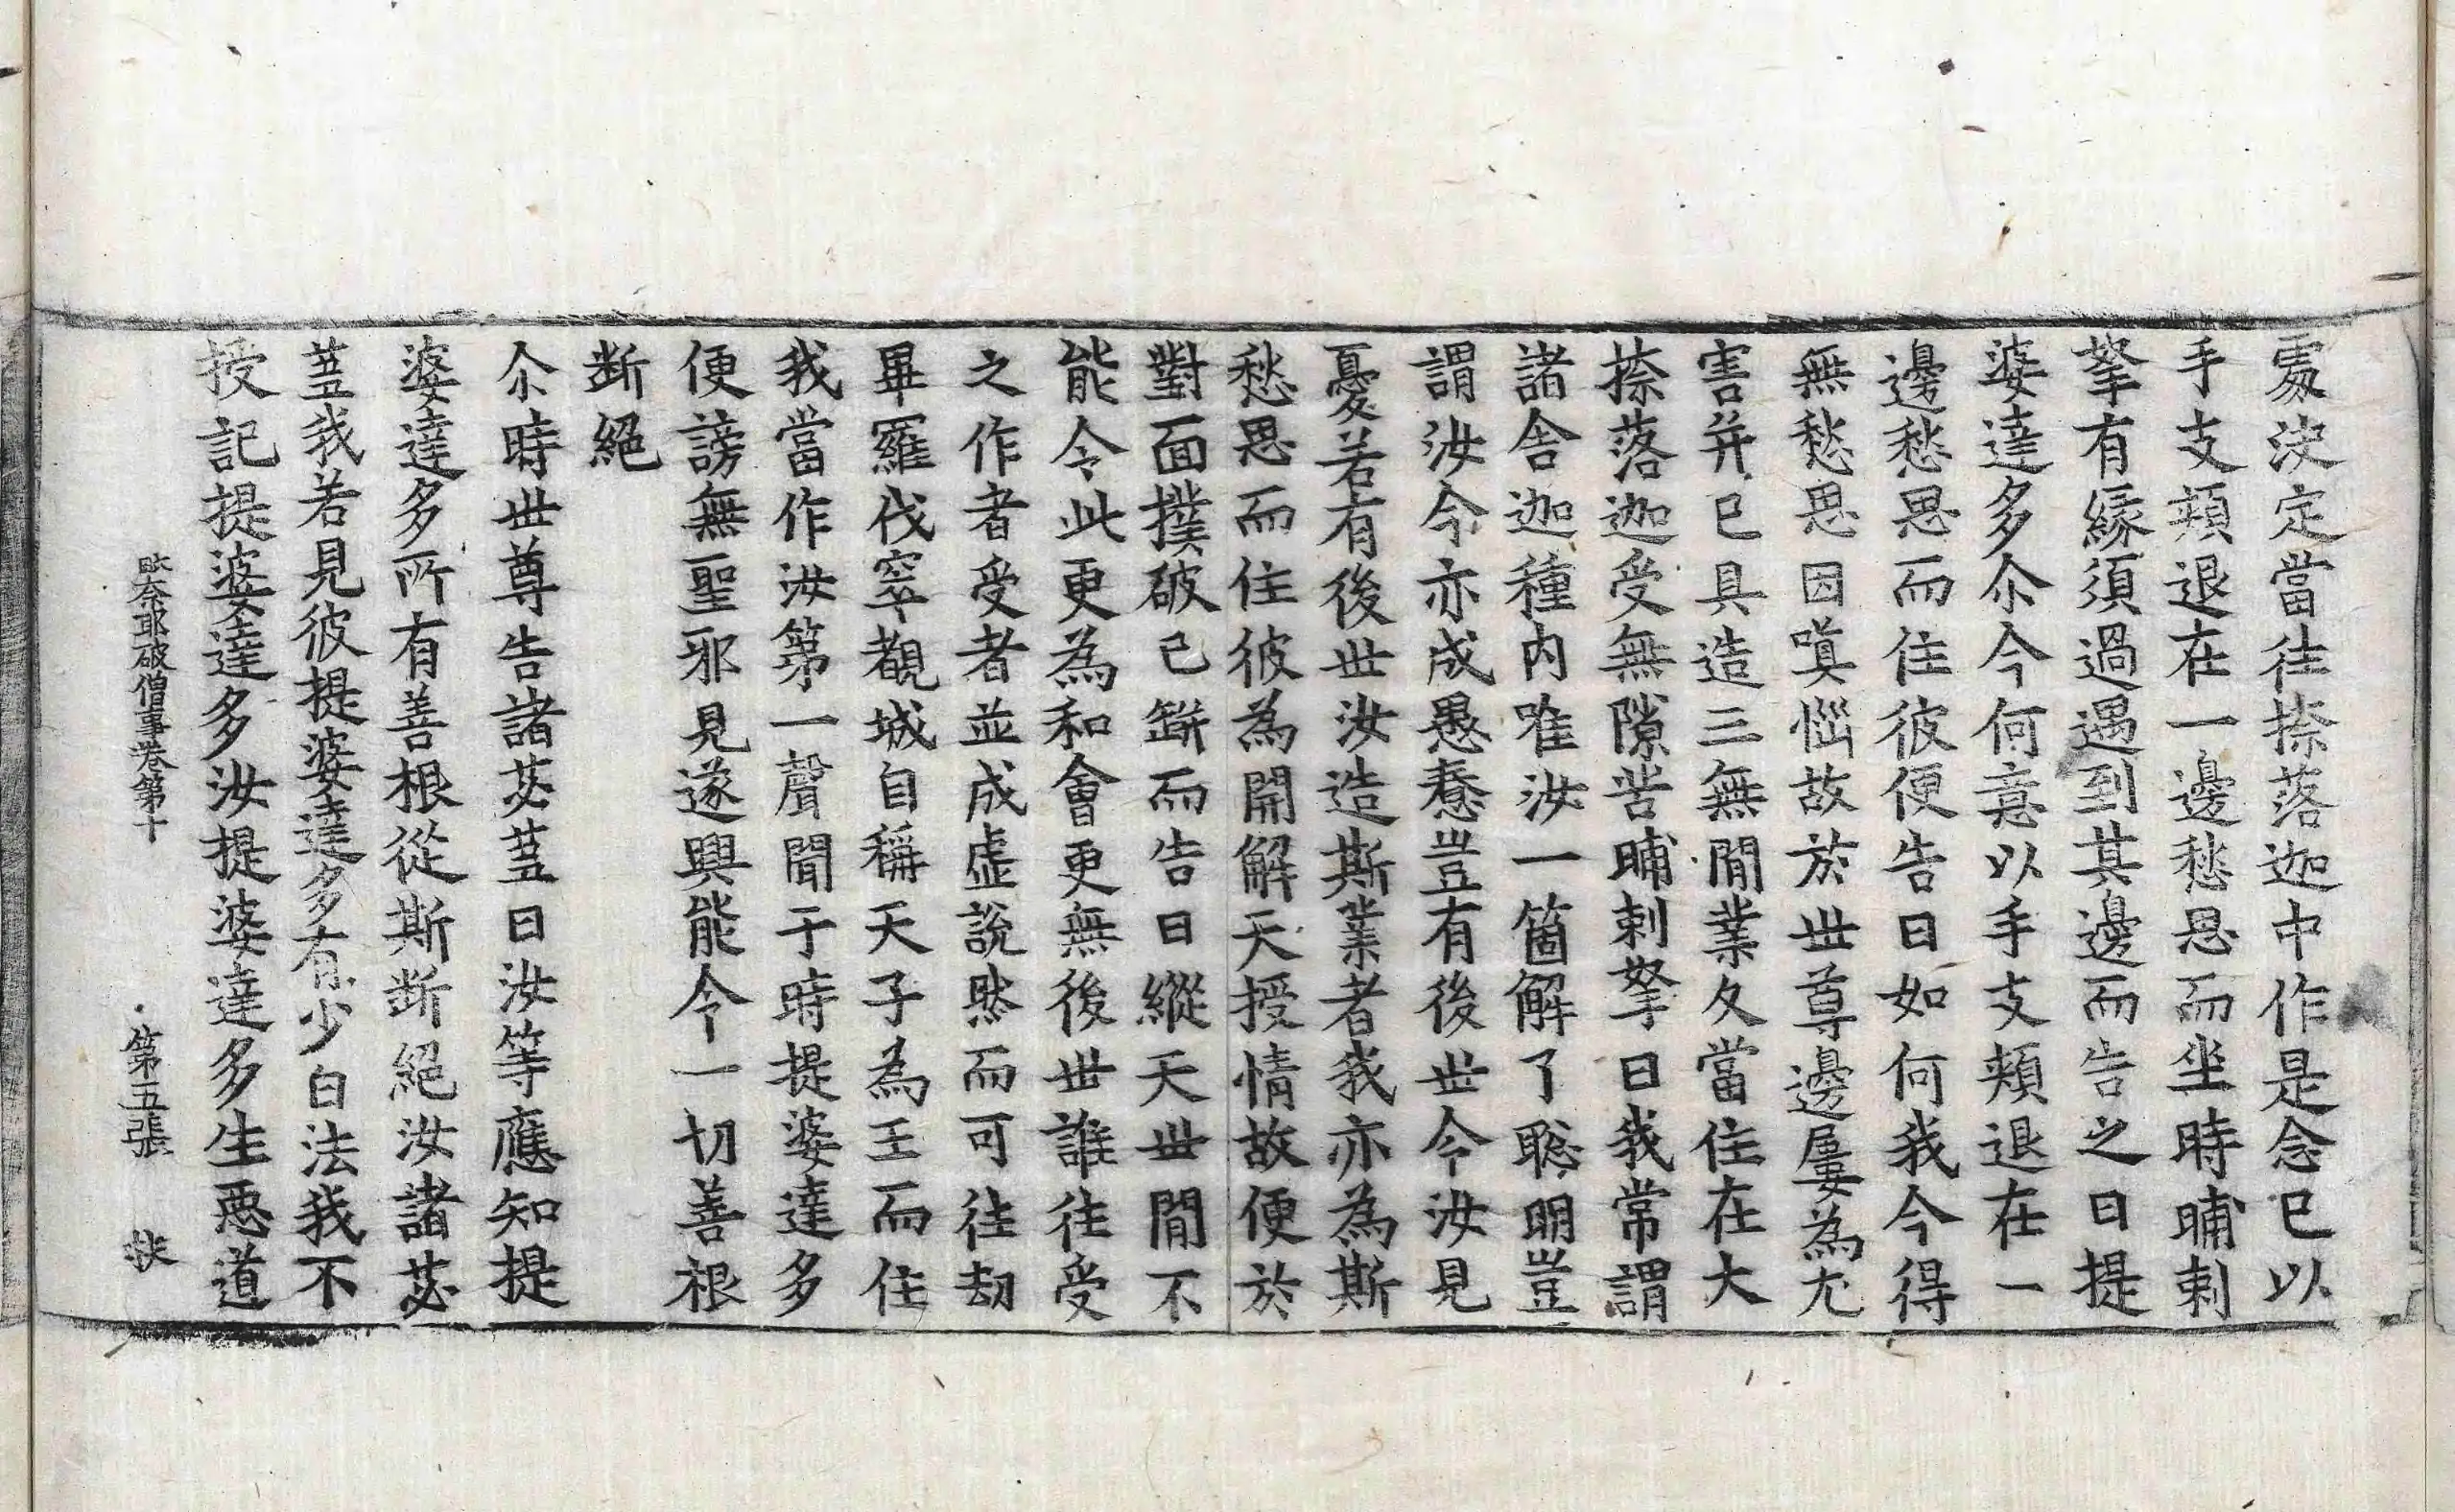 處決定當往捺落迦中作是念已以
手支頰退在一邊愁思而坐時晡剌
拏有緣須過遇到其邊而告之曰提
婆達多尒今何意以手支頰退在一
邊愁思而住彼便告曰如何我今得
無愁思因嗔惱故於世尊邊屢為尤
害并已具造三無閒業久當住在大
捺落迦受無隙苦晡剌拏曰我常謂
諸舍迦種內唯汝一箇解了聡明豈
謂汝今亦成愚惷豈有後世今汝見
憂若有後世汝造斯業者我亦為斯
愁思而住彼為開解天授情故便於
對面撲破己缾而告曰縱天世閒不
能令此更為和會更無後世誰往受
之作者受者並成虛說然而可往劫
畢羅伐窣覩城自稱天子為王而住
我當作汝第一聲聞于時提婆達多
便謗無聖邪見遂興能令一切善根
斷絕
尒時世尊告諸苾蒭曰汝等應知提
婆達多所有善根從斯斷絕汝諸苾
蒭我若見彼提婆達多有少白法我不
授記提婆達多汝提婆達多生惡道
毗奈耶破僧事卷第十 第五張